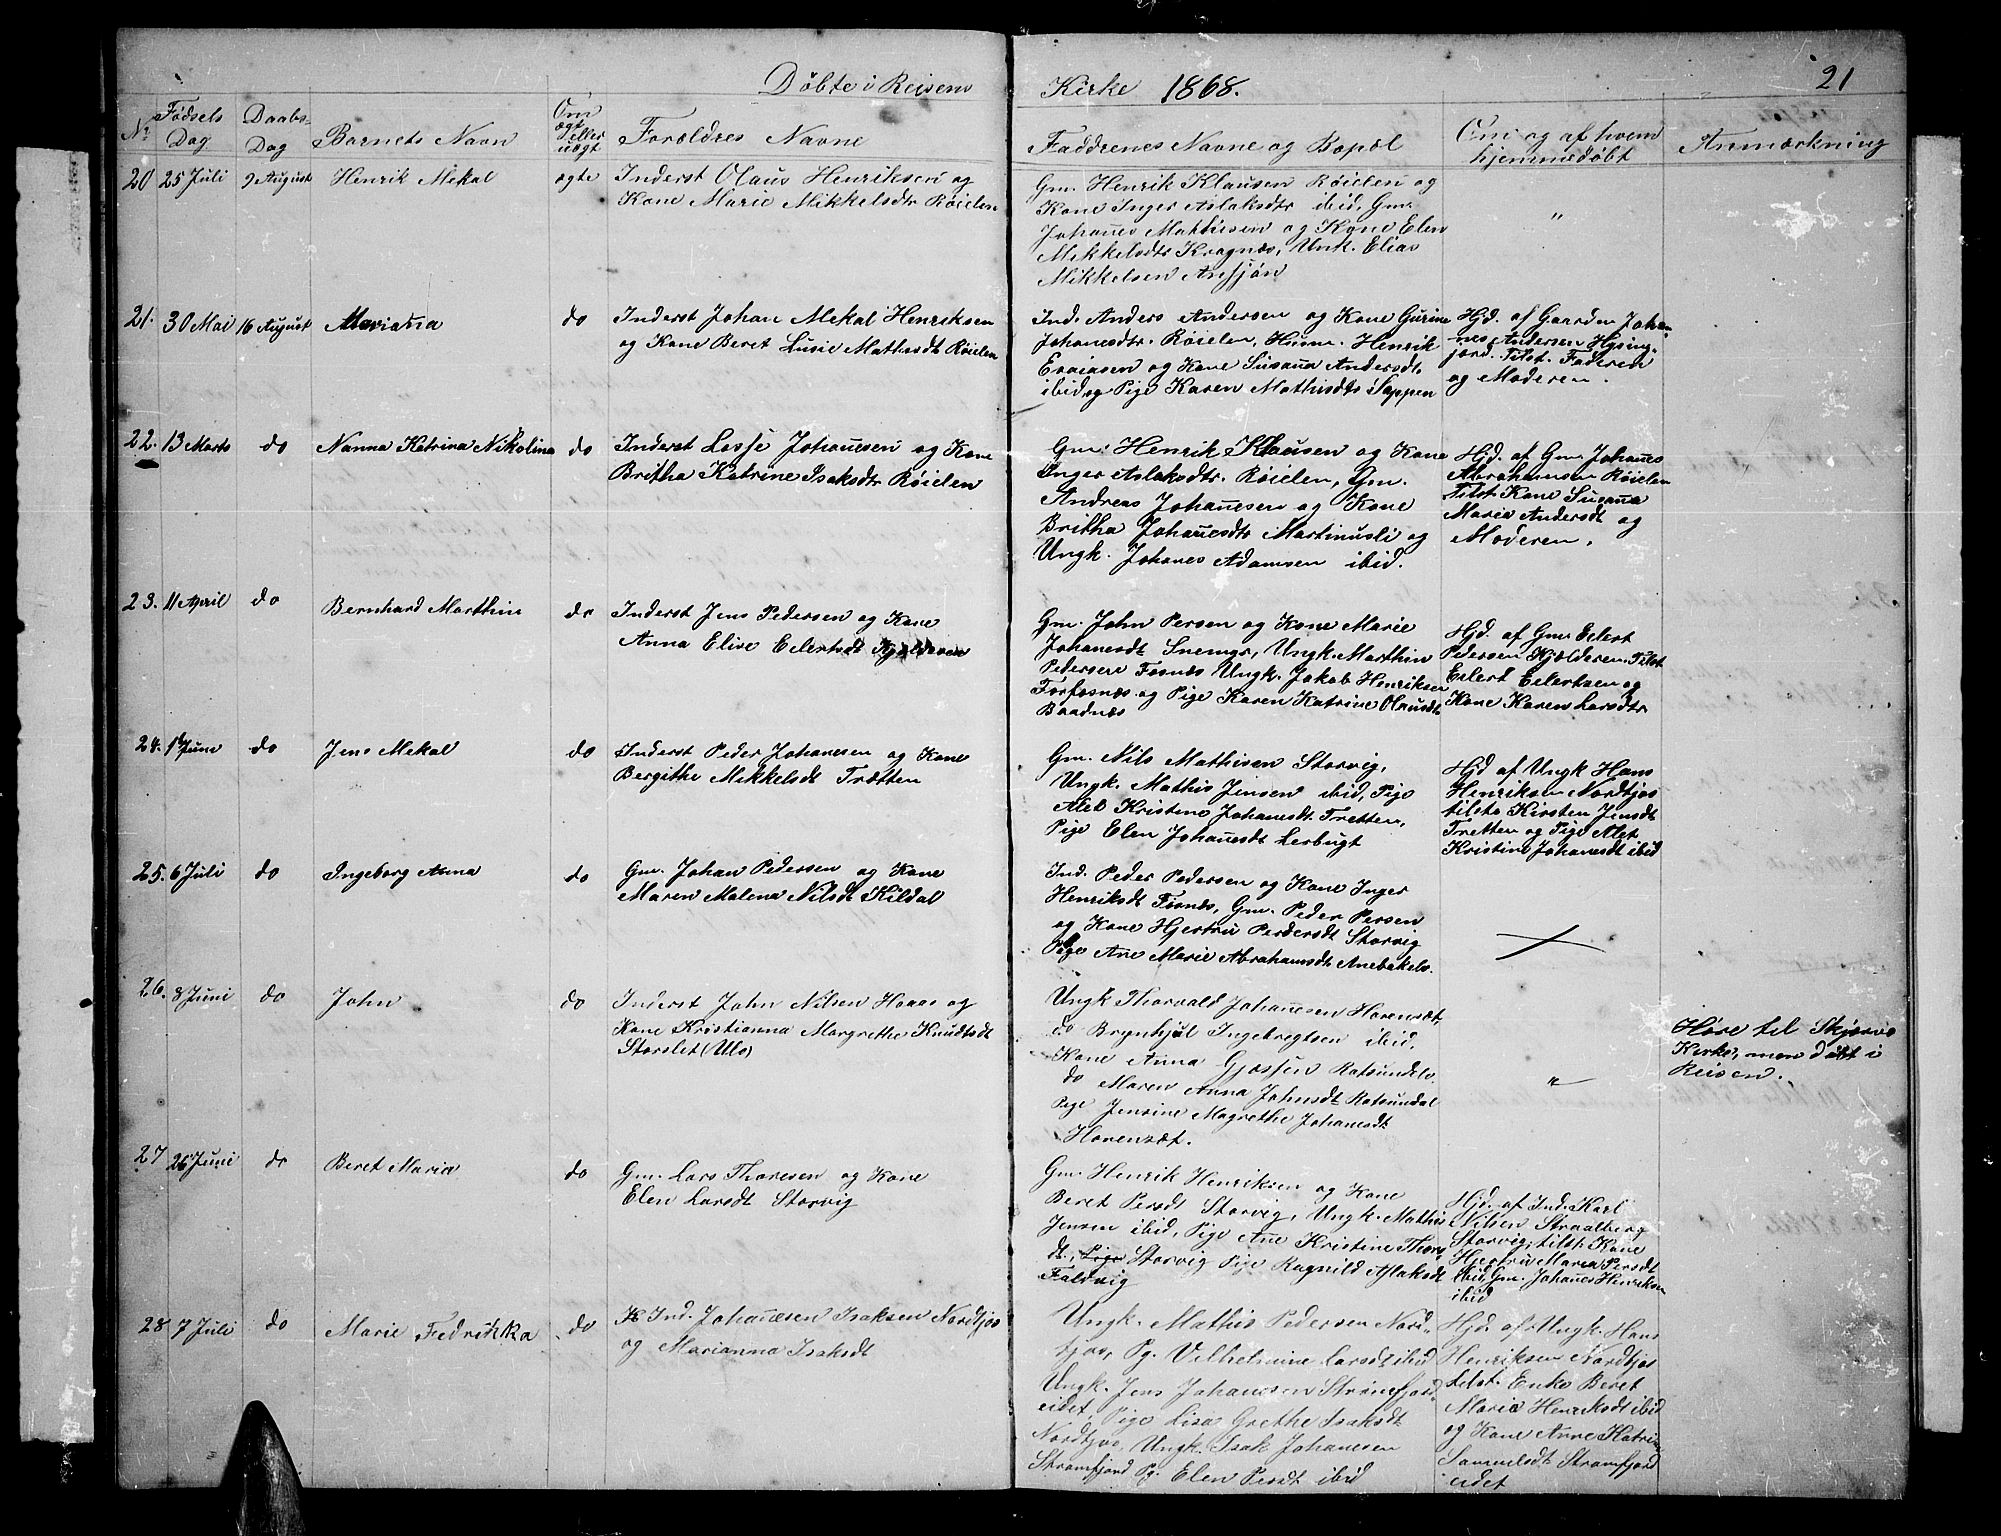 Døbte i Reisens Kirke 1868.
21
No
Fødsels Dag
Daabs-Dag
Barnets Navn
Om ægt eller uægt
Forældres Navne
Faddrenes Navne og Bopæl
Om og af hvem hjemmedøbt
Anmærkning
20 25 Juli 9 August Henrik Mekal ægte
Inderst Olaus Henriksen og
Kone Marie Mikkelsdtr Røielen
Gm. Henrik Klausen Røielen og
Kone Inger Aslaksdtr ibid, Gm.
Johanes Mathisen og Kone Elen
Mikkelsdtr Kragnæs, Unk. Elias
Mikkelsen Ansjøn
"
21. 30 Mai 16 August Mariana do
Inderst Johan Mekal Henriksen
og Kone Beret Lusie Mathisdt Røielen
Ind. Anders Andersen og Kone Gurine
Johanesdtr. Røielen, Husm. Henrik
Esaiasen og Kone Susana Andersdt.
ibid, og Pige Karen Mathisdtr Sappen
Hjd. af Gaardm Johan-
nes Andersen
Tilst. Faderen
og Moderen.
22. 13 Marts do Nanna Katrina Nikolina do
Inderst Lasse Johanesen og Kone
Britha Katrine Isaksdtr Røielen
Gm. Henrik Klausen og Kone
Inger Aslaksdtr. Røielen, Gm.
Andreas Johanesen og Kone
Britha Johanesdtr Martinusli og
Ungk. Johanes Adamsen ibid.
Hjd. af Gm. Johanes
Abrahamsen Røielen
Tilst. Kone Susana
Maria Andersdt og
Moderen.
23. 11 April do Bernhard Marthin do
Inderst Jens Pedersen og Kone
Anna Elise Eilertsdt Kjælderen
Gm. John Persen og Kone Marie
Johanesdt Snemyr, Ungk. Marthin
Pedersen Fosnæs Ungk. Jakob Henriksen
Forfosnæs og Pige Karen Katrine Olausdt
Baadnæs
Hjd. af Gm. Eilert
Pedersen Kjælderen. Tilst
Eilert Eilertsen og
Kone Karen Larsdtr
24. 1 Juni do Jens Mekal do
Inderst Peder Johanesen og Kone
Bergithe Mikkelsdt Trætten
Gm. Nils Mathisen Storvig,
Ungk. Mathis Jensen ibid, Pige
Alet Kristine Johanesdt Tretten,
Pige Elen Johanesdt Lerbugt
Hjd af Ungk Hans
Henriksen Nordtjos
tilste Kirsten Jensdt
Tretten og Pige Alet
Kristine Johanesdt ibid
25. 6 Juli do Ingeborg Anna do
Gm. Johan Pedersen og Kone
Maren Malena Nilsdt Kildal
Ind. Peder Pedersen og Kone Inger
Henriksdt Fosnæs, Gm. Peder Persen
og Kone Hjertru Persdt Storvig
Pige Ane Marie Abrahamsdt Anebakels.
26. 8 Juni do John do
Inderst John Nilsen Haas og
Kone Kristianna Margrethe Knudtsdt
Storslet (Ulo)
Ungk Thorvald Johanesen Havensæt,
do Brynhjul Ingebregtsen ibid,
Kone Anna Gjøssen Rotsundelv.
do Maren Anna Johnsdt Rotsundal
Pige Jensine Magrethe Johanesdt
Havensæt.
"
Høre til Skjærvø
Kirke, men døbt i
Reisen.
27 26 Juni do Beret Maria do
Gm. Lars Thoresen og Kone
Elen Larsdt Storvig
Gm. Henrik Henriksen og Kone
Beret Persdt Storvig, Ungk. Mathis
Jensen ibid, Pige Ane Kristine Thors
dt., Pige Storvig Pige Ragnild Aslaksdt
Faldvig
Hjd. af Ind. Karl
Nilsen Straalberg
Storvig, tilst. Kone
Hjertru Maria Persdt
ibid, Gm. Johanes Henriksen
ibid
28 7 Juli do Marie Fedrikka do
Ind. Johanesen Isaksen Nordtjos
og Marianna Isaksdt
Ungk. Mathis Pedersen Nord-
tjos, Pg. Vilhelmine Larsdt ibid
Ungk. Jens Johanesen Strømfjord-
eidet, Pige Lisa Grethe Isaksdt
Nordtjos, Ungk. Isak Johanesen
Strømfjord Pg. Elen Persdt ibid
Hjd. af Ungk. Hans
Henriksen Nordtjos
tilst. Enke Beret
Maria Henriksdt ibid
og Kone Anne Katrine
Samuelsdt Strømfjord
eidet